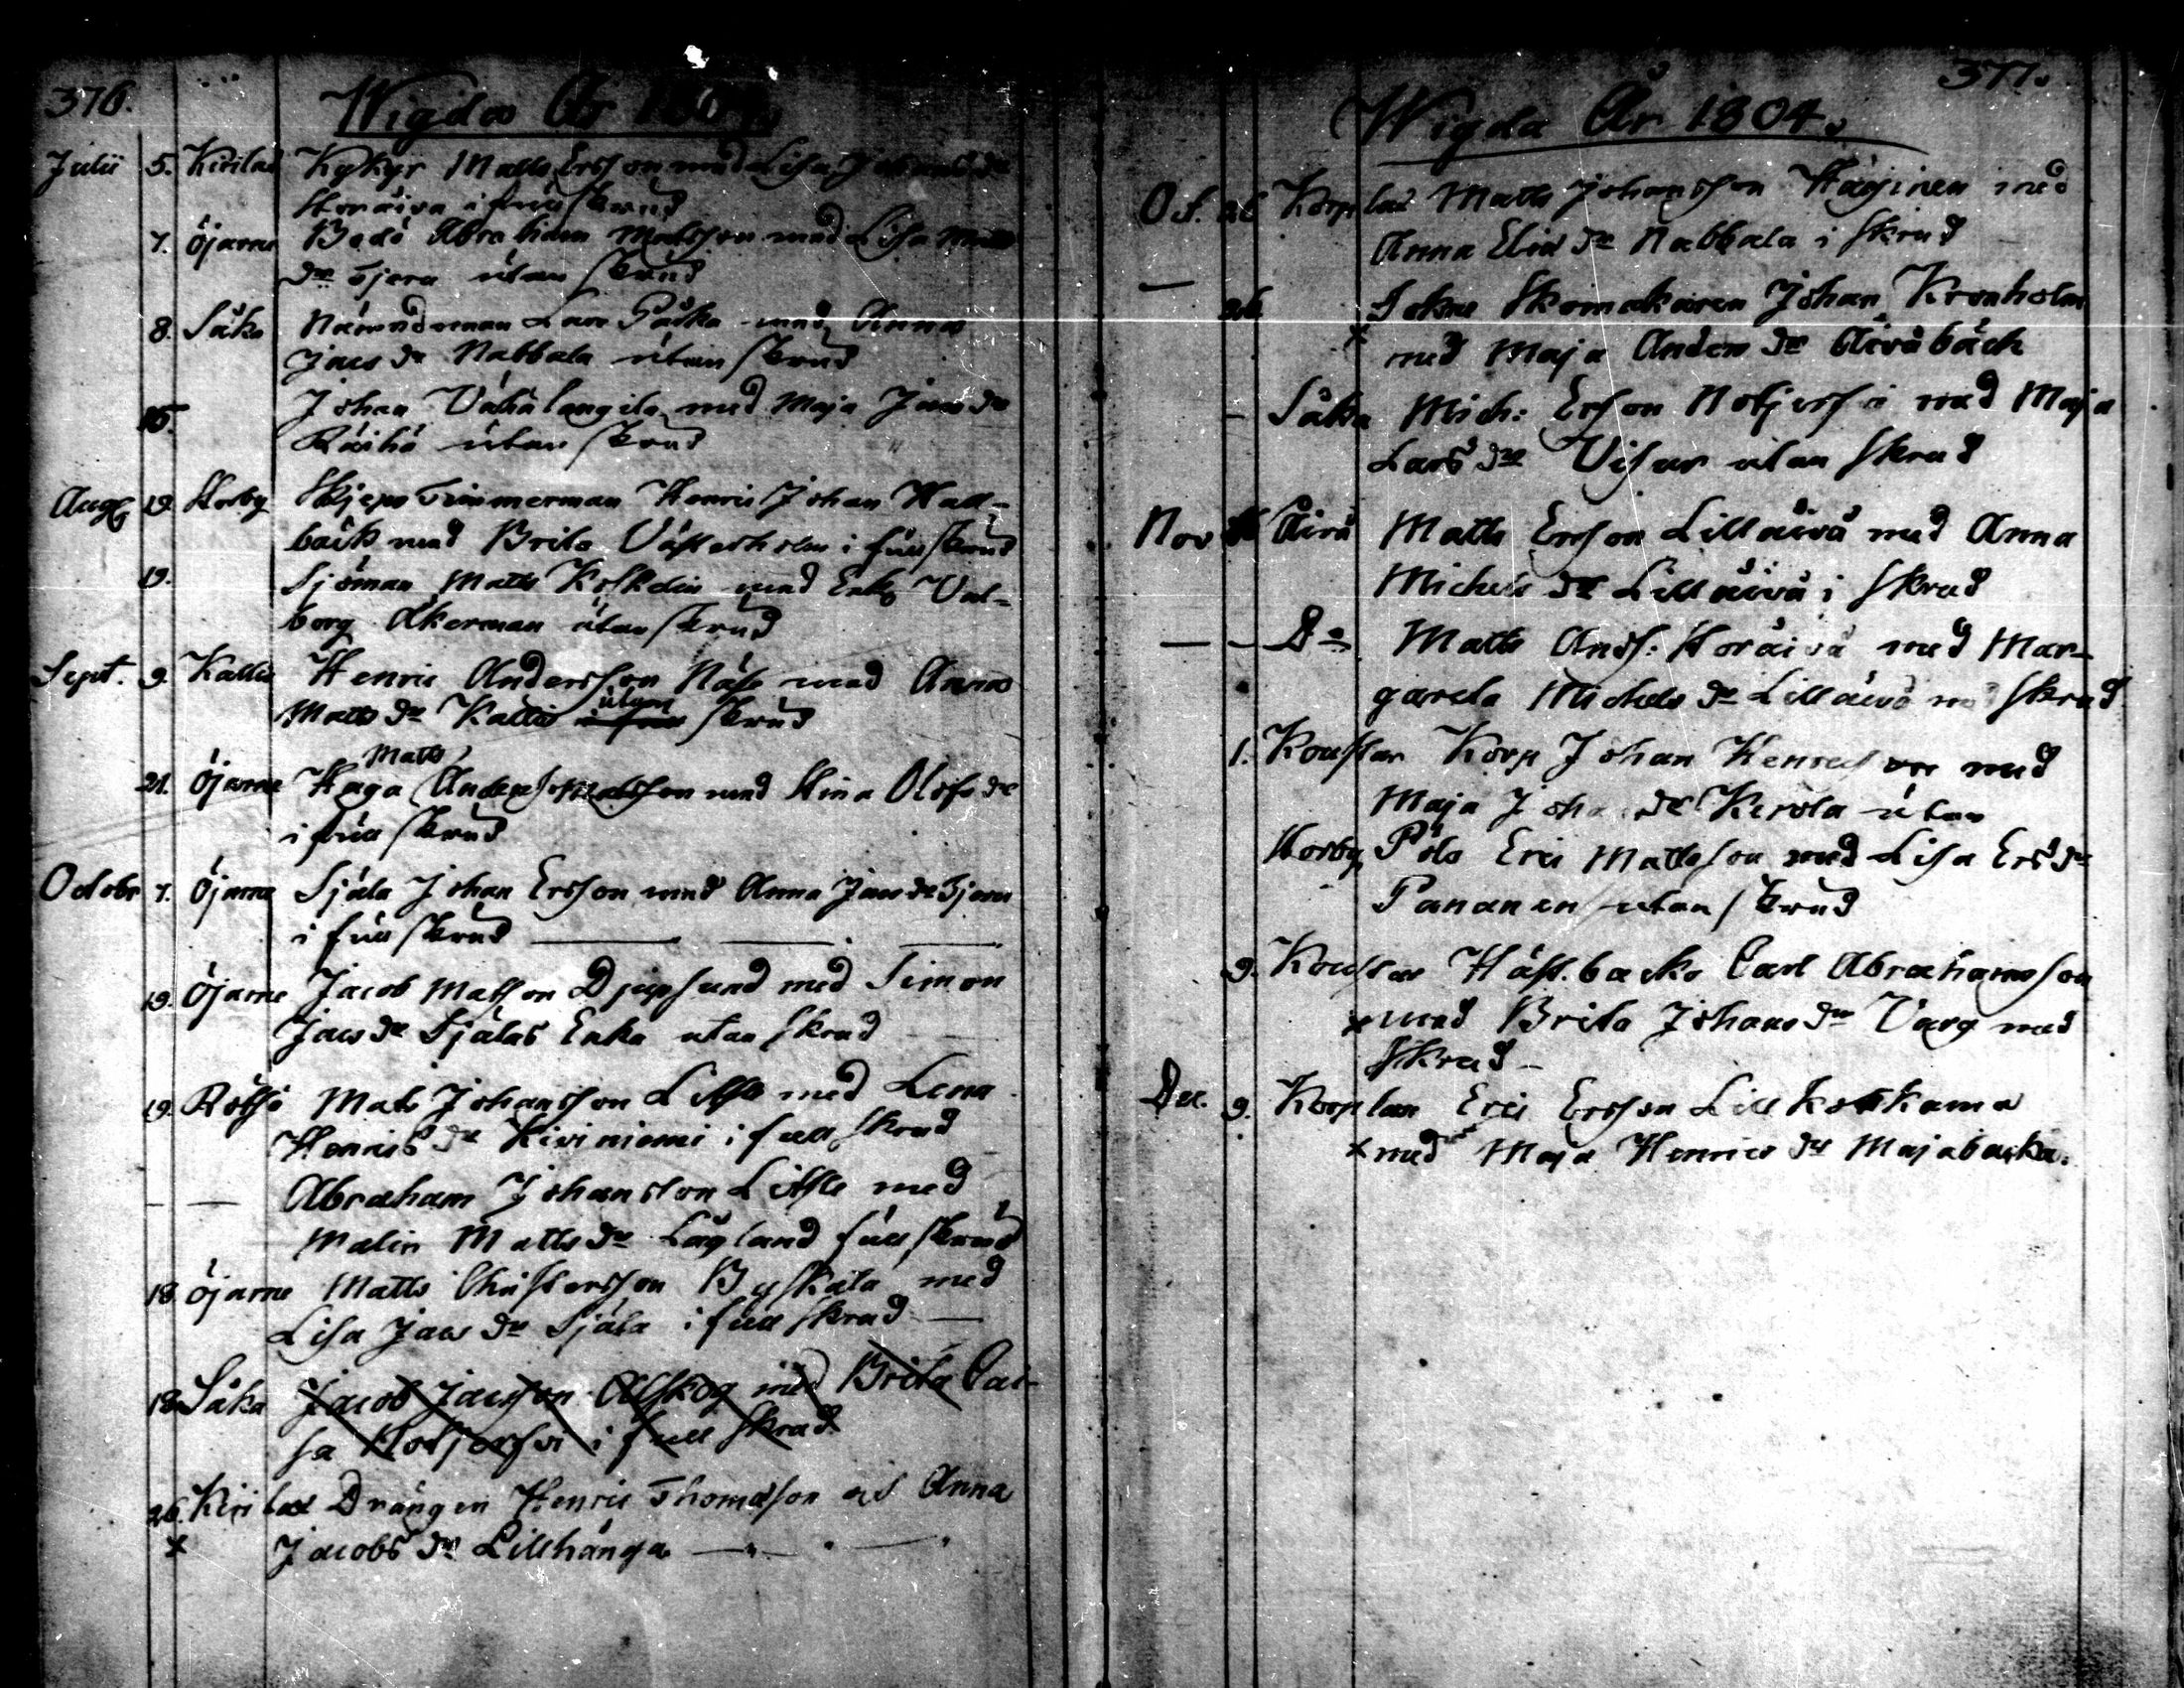 376.
Wigda År 1804.
Julii 5. Kivilax Kykyr Matts Ersson med Lisa Johans dr
Storåiva i full skrud
7. Öjarne Bodö Abraham Mattsson med Lisa Matts
dr Tjera utan skrud
8. Såka Nämndeman Lars Påska med Anna
Jacs dr Nabbala utan skrud
15. Johan Vähälångila med Maja Jacs dr
Räihä utan skrud
Aug 19. Storby Skjeps Timmerman Henric Johan Hall-
bäck med Brita Västerholm i full skrud
19. Sjöman Matts Koskelin med Enk Val-
borg Åkerman utan skrud
Sept. 9. Kallis Henric Andersson Näse med Anna
Matts dr Kallis utan skrud
Matts
21. Öjarne Haga Anders Mattsson med Stina Olofs dr
i full skrud
Octobr 7. Öjarne Själa Johan Ersson med Anna Jacs dr Tjera
i full skrud
19. Öjarne Jacob Matsson Djupsund med Simon
Jacs dr Själas Enka utan skrud
19. Rölsö Mats Johansson Lisse med Lena
Henrics dr Kiviniemi i full skrud
Abraham Johansson Lisse med
Malin Matts dr Lågland full skrud
18. Öjarne Matts Christersson Byskata med
Lisa Jacs dr Själa i full skrud
18. Såka Jacob Jacsson Alskog med Brita Cai-
sa Noljersfvi i full skrud
26. Kivilax Drängen Henric Thomasson med Anna
x Jacobs dr Lillhånga
377.
Wigda År 1804.
Oct. 26 Korplax Matts Johansson Häyjinen med
Anna Elia dr Nabbala i skrud
26. Sokne Skomakaren Johan Kronholm
x med Maja Anders dr Åivåbäck
Såka Mich: Ersson Noljersfvi med Maja
Lars dr Visur utan skrud
Nov Åivå Matts Ersson Lillåivå med Anna
Michels dr Lillåivå i skrud
Do Matts Andss: Storåivå med Mar-
gareta Michels dr Lillåivå med skrud
1. Kouflax Korp Johan Henricsson med
Maja Joha dr Kerola utan
Storby Pölö Eric Mattsson med Lisa Ers dr
Pananen utan skrud
9. Kouflax Häst.backa Carl Abrahamsson
x med Brita Johans dr Varg med
skrud
Dec. 9. Korplax Eric Ersson Lill Koskama
x med Maja Henrics dr Majabacka.